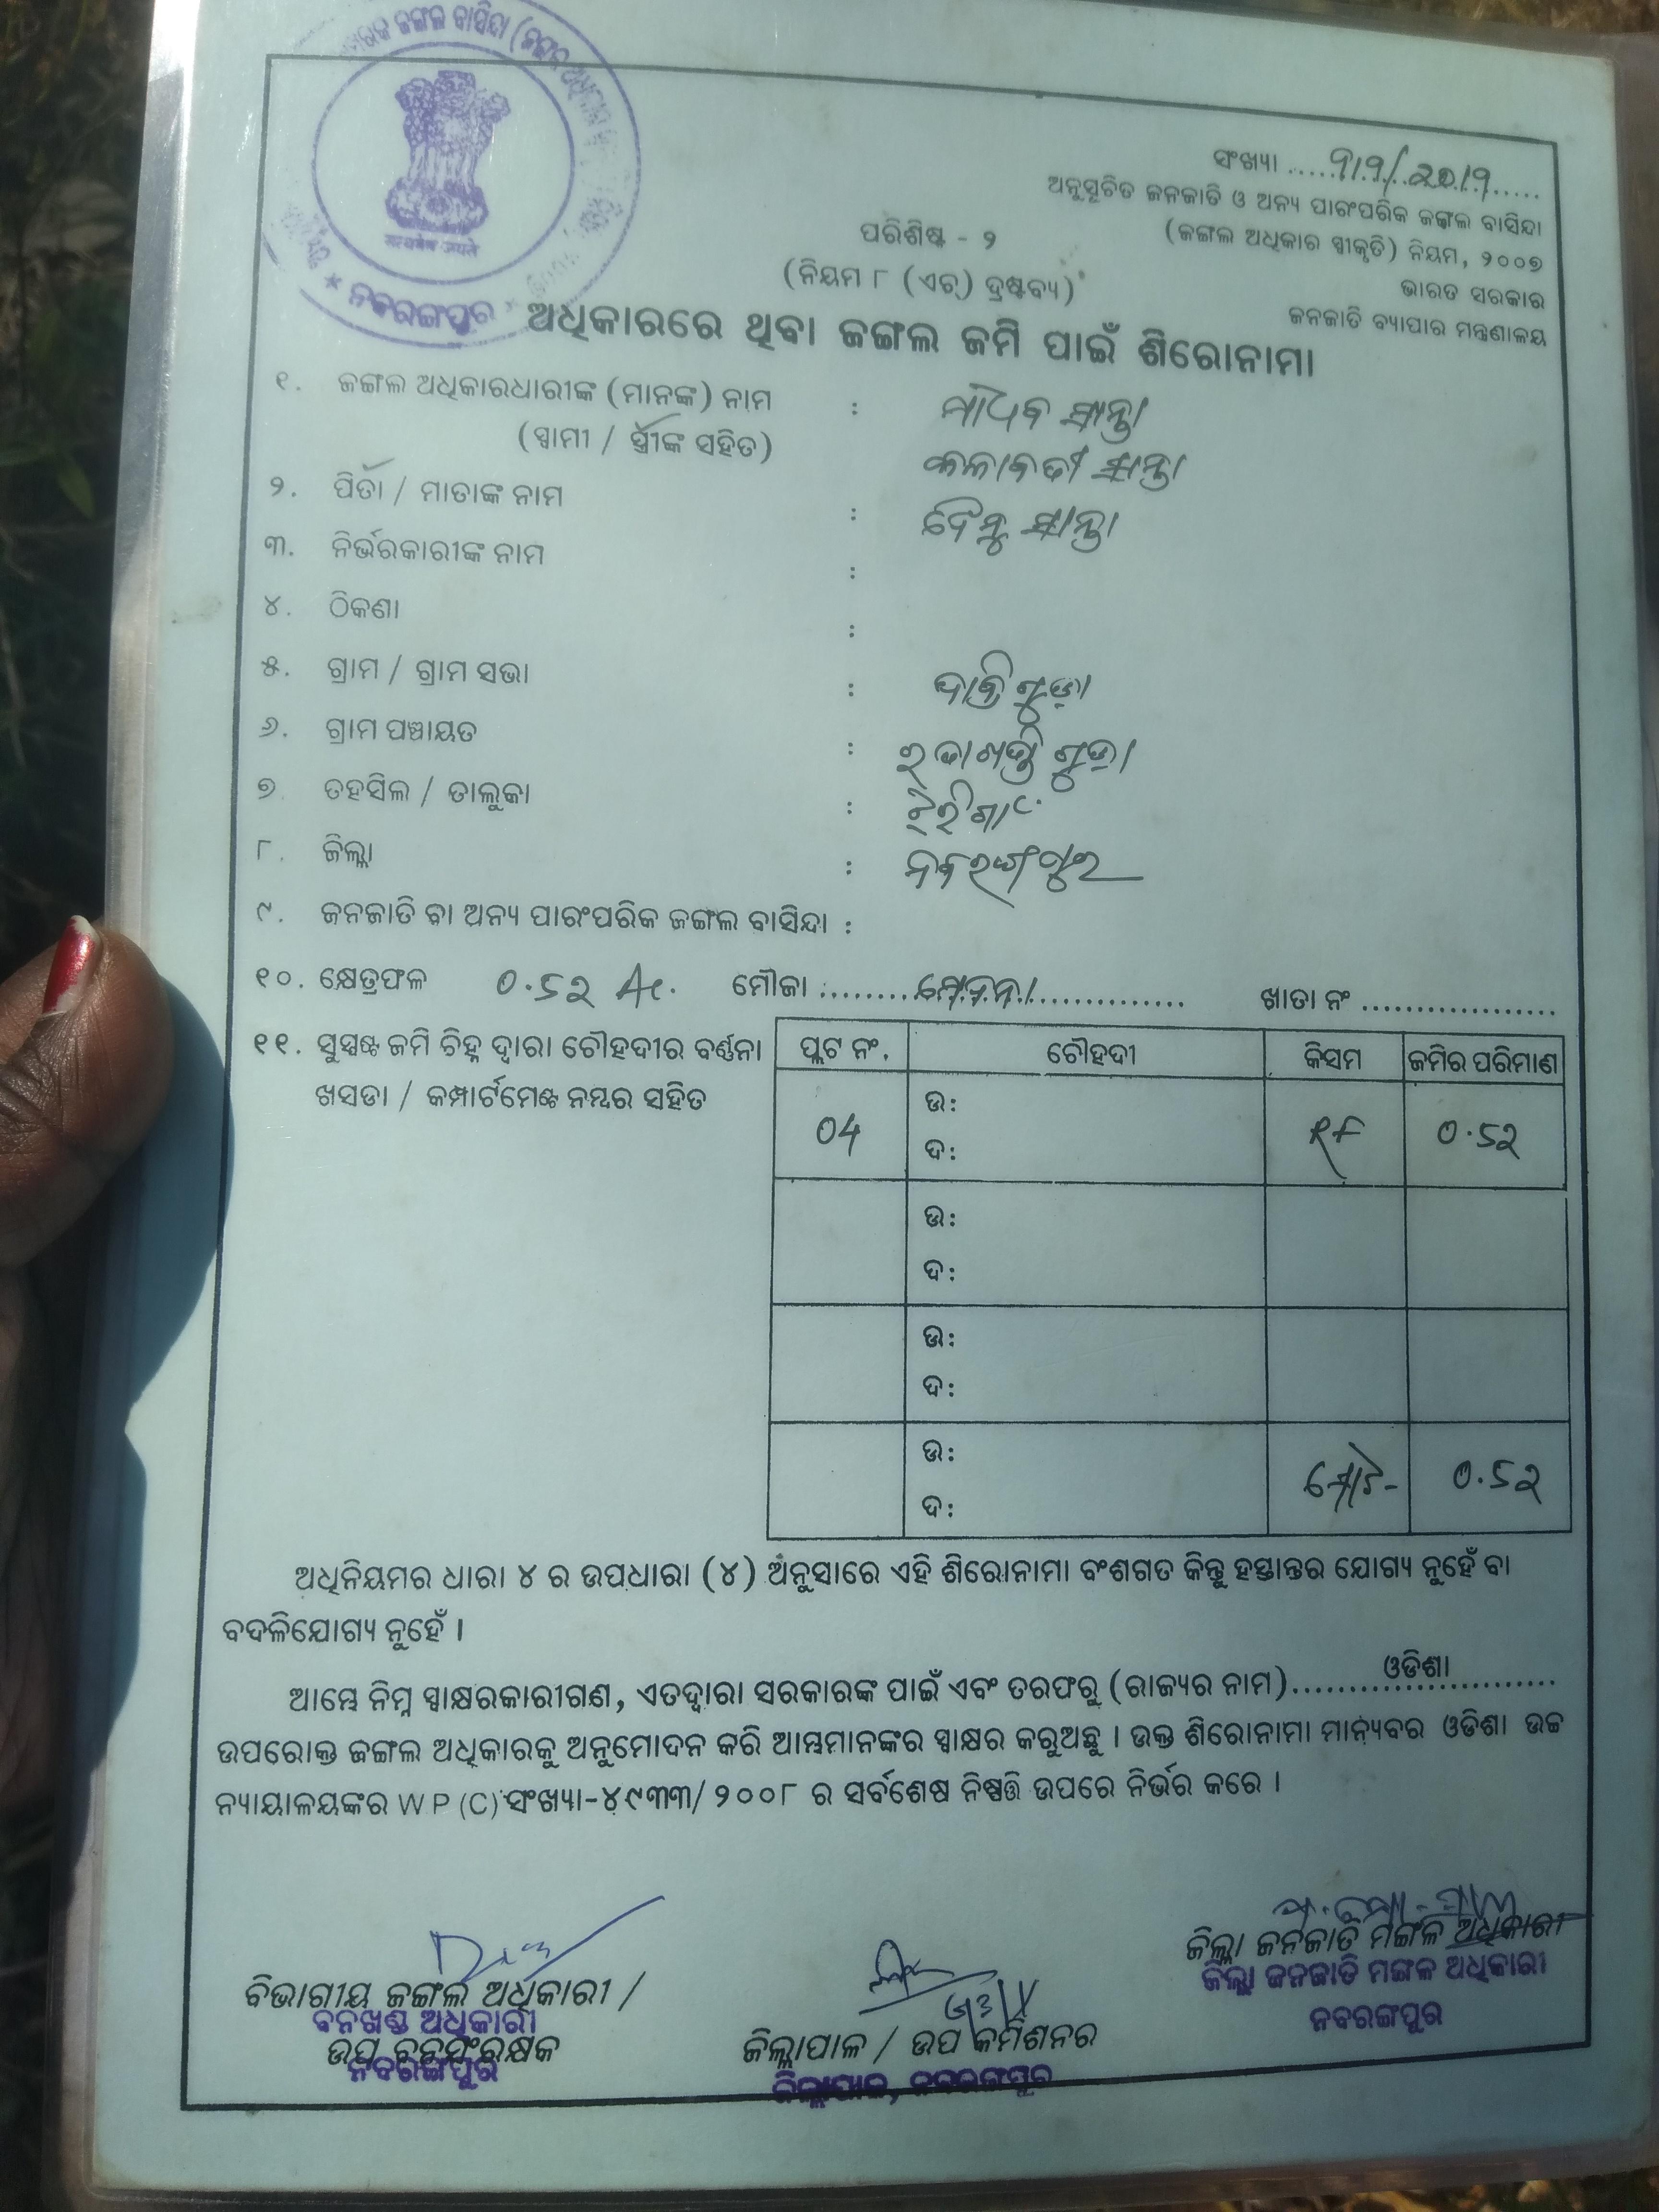 ସଂଖ୍ୟା
ଅନୁସୂଚିତ ଜନଜାତି ଓ ଅନ୍ୟ ପାରଂପରିକ ଜଙ୍ଗଲ ବାସିନ୍ଦା
(ଜଙ୍ଗଲ ଅଧିକାର ସ୍ୱୀକୃତି) ନିୟମ, ୨୦୦୭
ଭାରତ ସରକାର
ଜନଜାତି ବ୍ୟାପାର ମନ୍ତ୍ରଣାଳୟ
ପରିଶିଷ୍ଟ - ୨
(ନିୟମ ୮ (ଏଚ୍) ଦ୍ରଷ୍ଟବ୍ୟ)
ନବରଙ୍ଗପୁର
ଅଧିକାରରେ ଥିବା ଜଙ୍ଗଲ ଜମି ପାଇଁ ଶିରୋନାମା
୧. ଜଙ୍ଗଲ ଅଧିକାରଧାରୀଙ୍କ (ମାନଙ୍କ) ନାମ : ମାଧବ ସାନ୍ତା
(ସ୍ୱାମୀ / ସ୍ତ୍ରୀଙ୍କ ସହିତ) କଳାବତୀ ସାନ୍ତା
୨. ପିତା / ମାତାଙ୍କ ନାମ : ଦୈନୁ ସାନ୍ତା
୩. ନିର୍ଭରକାରୀଙ୍କ ନାମ :
୪. ଠିକଣା :
୫. ଗ୍ରାମ / ଗ୍ରାମ ସଭା :
୬. ଗ୍ରାମ ପଞ୍ଚାୟତ :
୭. ତହସିଲ / ତାଲୁକା : ଝରିଗାଁ
୮. ଜିଲ୍ଲା : ନବରଙ୍ଗପୁର
୯. ଜନଜାତି ବା ଅନ୍ୟ ପାରଂପରିକ ଜଙ୍ଗଲ ବାସିନ୍ଦା :
୧୦. କ୍ଷେତ୍ରଫଳ ୦.୫୨ Ac. ମୌଜା ଖାତା ନଂ
୧୧. ସୁସ୍ପଷ୍ଟ ଜମି ଚିହ୍ନ ଦ୍ୱାରା ଚୌହଦୀର ବର୍ଣ୍ଣନା
ଖସଡା / କମ୍ପାର୍ଟମେଣ୍ଟ ନମ୍ବର ସହିତ
ପ୍ଲଟ ନଂ. ଚୌହଦୀ କିସମ ଜମିର ପରିମାଣ
04 ଉ: ୦.୫୨
ଦ:
ଉ:
ଦ:
ଉ:
ଦ:
ଉ: ମୋଟ- ୦.୫୨
ଦ:
ଅଧିନିୟମର ଧାରା ୪ ର ଉପଧାରା (୪) ଅନୁସାରେ ଏହି ଶିରୋନାମା ବଂଶଗତ କିନ୍ତୁ ହସ୍ତାନ୍ତର ଯୋଗ୍ୟ ନୁହେଁ ବା
ବଦଳିଯୋଗ୍ୟ ନୁହେଁ ।
ଆମ୍ଭେ ନିମ୍ନ ସ୍ୱାକ୍ଷରକାରୀଗଣ, ଏତଦ୍ଦ୍ୱାରା ସରକାରଙ୍କ ପାଇଁ ଏବଂ ତରଫରୁ (ରାଜ୍ୟର ନାମ) ଓଡିଶା
ଉପରୋକ୍ତ ଜଙ୍ଗଲ ଅଧିକାରକୁ ଅନୁମୋଦନ କରି ଆମ୍ଭମାନଙ୍କର ସ୍ୱାକ୍ଷର କରୁଅଛୁ । ଉକ୍ତ ଶିରୋନାମା ମାନ୍ୟବର ଓଡିଶା ଉଚ୍ଚ
ନ୍ୟାୟାଳୟଙ୍କର W P (C) ସଂଖ୍ୟା-୪୯୩୩/ ୨୦୦୮ ର ସର୍ବଶେଷ ନିଷ୍ପତ୍ତି ଉପରେ ନିର୍ଭର କରେ ।
ଜିଲ୍ଲା ଜନଜାତି ମଙ୍ଗଳ ଅଧିକାରୀ
ଜିଲ୍ଲା ଜନଜାତି ମଙ୍ଗଳ ଅଧିକାରୀ
ନବରଙ୍ଗପୁର
ବିଭାଗୀୟ ଜଙ୍ଗଲ ଅଧିକାରୀ /
ବନଖଣ୍ଡ ଅଧିକାରୀ
ଉପ ବନସଂରକ୍ଷକ
ନବରଙ୍ଗପୁର
ଜିଲ୍ଲାପାଳ / ଉପ କମିଶନର
ଜିଲ୍ଲାପାଳ, ନବରଙ୍ଗପୁର